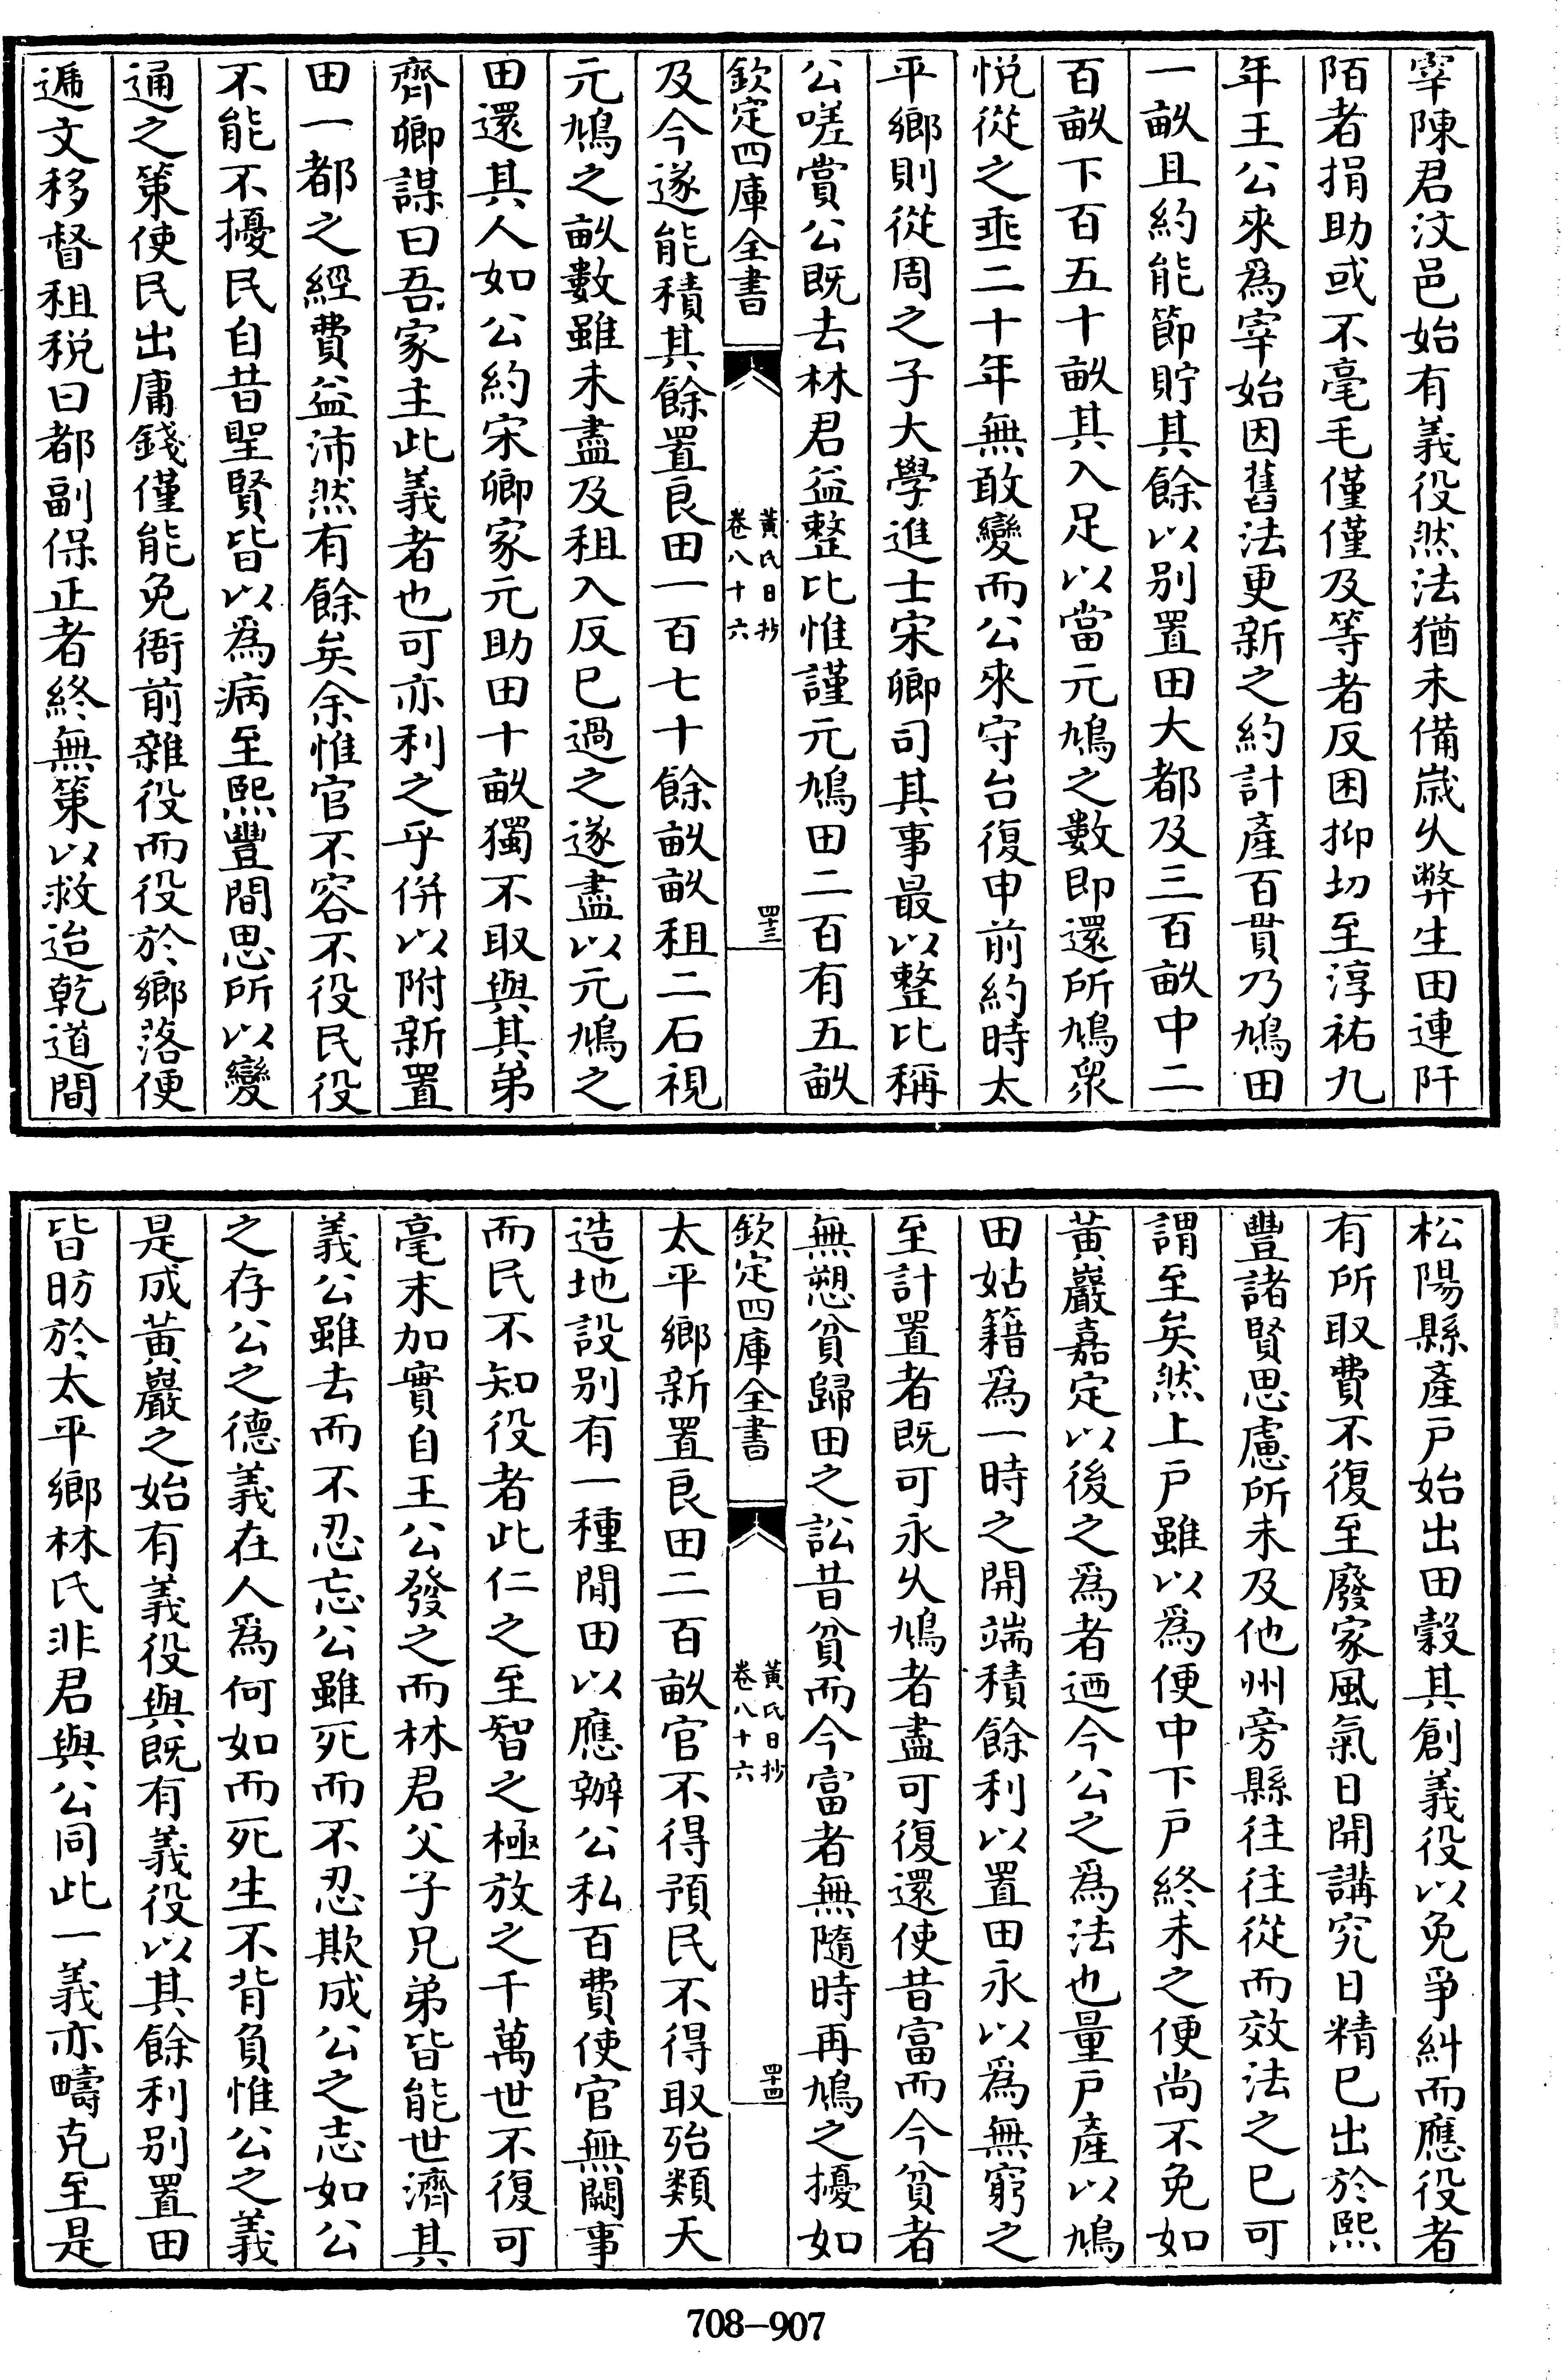 宰陳君汶邑始有義役然法猶未備歲久弊生田連阡
陌者捐助或不毫毛僅僅及等者反困抑切至淳祐九
年王公來爲宰始因舊法更新之約計產百貫乃鳩田
一畝且約能節貯其餘以別置田大都及三百畝中二
百畝下百五十畝其入足以當元鳩之數即還所鳩衆
悅從之乖二十年無敢變而公來守台復申前約時太
平鄉則從周之子大學進士宋卿司其事最以整比稱
公嗟賞公既去林君益整比惟謹元鳩田二百有五畝
欽定四庫全書
黃氏日抄
卷八十六
四十三
及今遂能積其餘置良田一百七十餘畝畝租二石視
元鳩之畝數雖未盡及租入反已過之遂盡以元鳩之
田還其人如公約宋卿家元助田十畝獨不取與其弟
齊卿謀曰吾家主此義者也可亦利之乎併以附新置
田一都之經費益沛然有餘矣余惟官不容不役民役
不能不擾民自昔聖賢皆以爲病至熙豐間思所以變
通之策使民出庸錢僅能免衙前雜役而役於鄉落便
遞文移督租稅曰都副保正者終無策以救迨乾道間
松陽縣產戶始出田穀其創義役以免爭糾而應役者
有所取費不復至廢家風氣日開講究日精已出於熙
豐諸賢思慮所未及他州旁縣往往從而效法之已可
謂至矣然上戶雖以爲便中下戶終未之便尚不免如
黃巖嘉定以後之爲者迺今公之爲法也量戶產以鳩
田姑籍爲一時之開端積餘利以置田永以爲無窮之
至計置者既可永久鳩者盡可復還使昔富而今貧者
無愬貧歸田之訟昔貧而今富者無隨時再鳩之擾如
欽定四庫全書
黃氏日抄
卷八十六
四十四
太平鄉新置良田二百畝官不得預民不得取殆類天
造地設別有一種閒田以應辦公私百費使官無闕事
而民不知役者此仁之至智之極放之千萬世不復可
毫末加實自王公發之而林君父子兄弟皆能世濟其
義公雖去而不忍忘公雖死而不忍欺成公之志如公
之存公之德義在人爲何如而死生不背負惟公之義
是成黃巖之始有義役與既有義役以其餘利別置田
皆昉於太平鄉林氏非君與公同此一義亦疇克至是
708-907